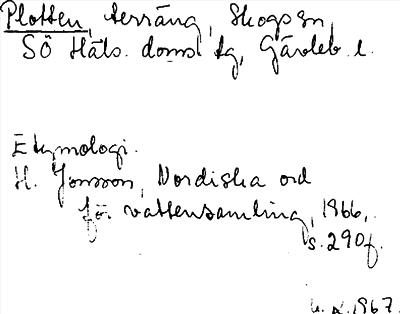 Plotten, terräng, Skogs sn,
SÖ Häls. doms. tg, Gävleb. l.
Etymologi.
H. Jonsson, Nordiska ord
för vattensamling, 1966,
s. 290f.
1967